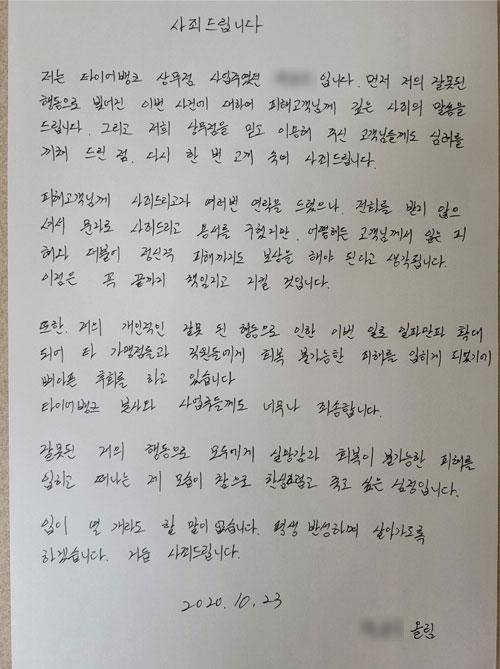 사죄드립니다
저는 타이어뱅크 상무점 사업주였던 입니다. 먼저 저의 잘못된
행동으로 빚어진 이번 사건에 대하여 피해고객님께 깊은 사죄의 말씀을
드립니다. 그리고 저희 상무점을 믿고 이용해 주신 고객님들께도 심려를
끼쳐 드린 점. 다시 한 번 고개 숙여 사죄드립니다.
피해고객님께 사죄드리고자 여러번 연락을 드렸으나. 전화를 받지 않으
셔서 문자로 사죄드리고 용서를 구했지만. 어떻하든 고객님께서 입은 피
해와 더불어 정신적 피해까지도 보상을 해야 된다고 생각됩니다.
이점은 꼭 끝까지 책임지고 지킬 것입니다.
또한. 저의 개인적인 잘못 된 행동으로 인한 이번 일로 일파만파 확대
되어 타 가맹점들과 직원들에게 회복 불가능한 피해를 입히게 되었기에
뼈아픈 후회를 하고 있습니다
타이어뱅크 본사와 사업주들께도 너무나 죄송합니다.
잘못된 저의 행동으로 모두에게 실망감과 회복이 불가능한 피해를
입히고 떠나는 제 모습이 참으로 한심스럽고 죽고 싶은 심정입니다.
입이 열 개라도 할 말이 없습니다. 평생 반성하며 살아가도록
하겠습니다. 거듭 사죄드립니다.
2020. 10. 23
올림